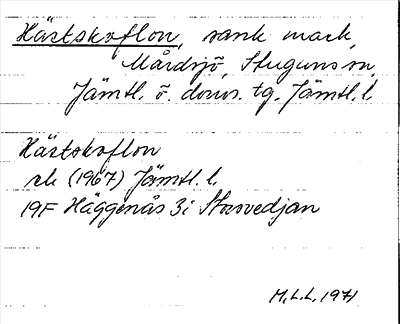 Hästskoflon, sank mark,
Mårdsjö, Stuguns sn,
Jämtl. ö. doms. tg. Jämtl. l
Hästskoflon
ek (1967) Jämtl. l.
19F Häggenås 3i Storvedjan
M.L.L. 1971